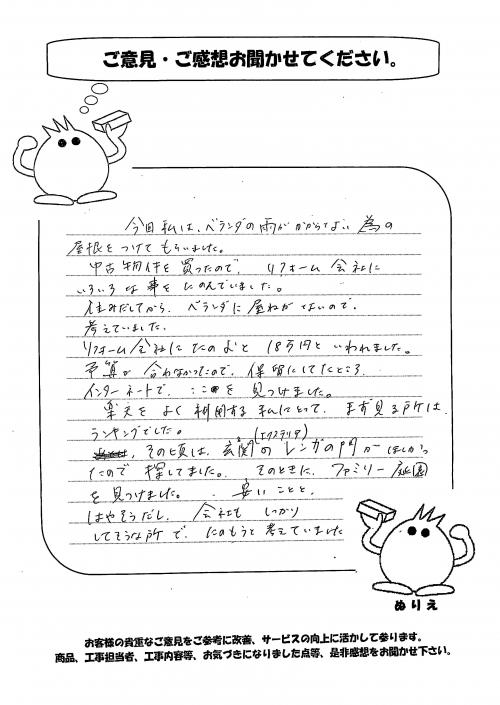 ご意見・ご感想お聞かせてください。
今回私は、ベランダの雨がかからない為の
屋根をつけてもらいました。
中古物件を買ったので、リフォーム会社に
いろいろな事をたのんでいました。
住みだしてから、ベランダに屋ねがないので、
考えていました。
リフォーム会社にたのむと18万円といわれました。
予算が合わなかったので、保留にしてたところ、
インターネットで、ここを見つけました。
楽天をよく利用する私にとって、まず見る所は
ランキングでした。
(エクステリア)
その頃は、玄関のレンガの門がほしかっ
たので探してました。そのときに、ファミリー庭園
を見つけました。安いことと、
はやそうだし、会社もしっかり
してそうな所で、たのもうと考えていました
ぬりえ
お客様の貴重なご意見をご参考に改善、サービスの向上に活かして参ります。
商品、工事担当者、工事内容等、お気づきになりました点等、是非感想をお聞かせ下さい。